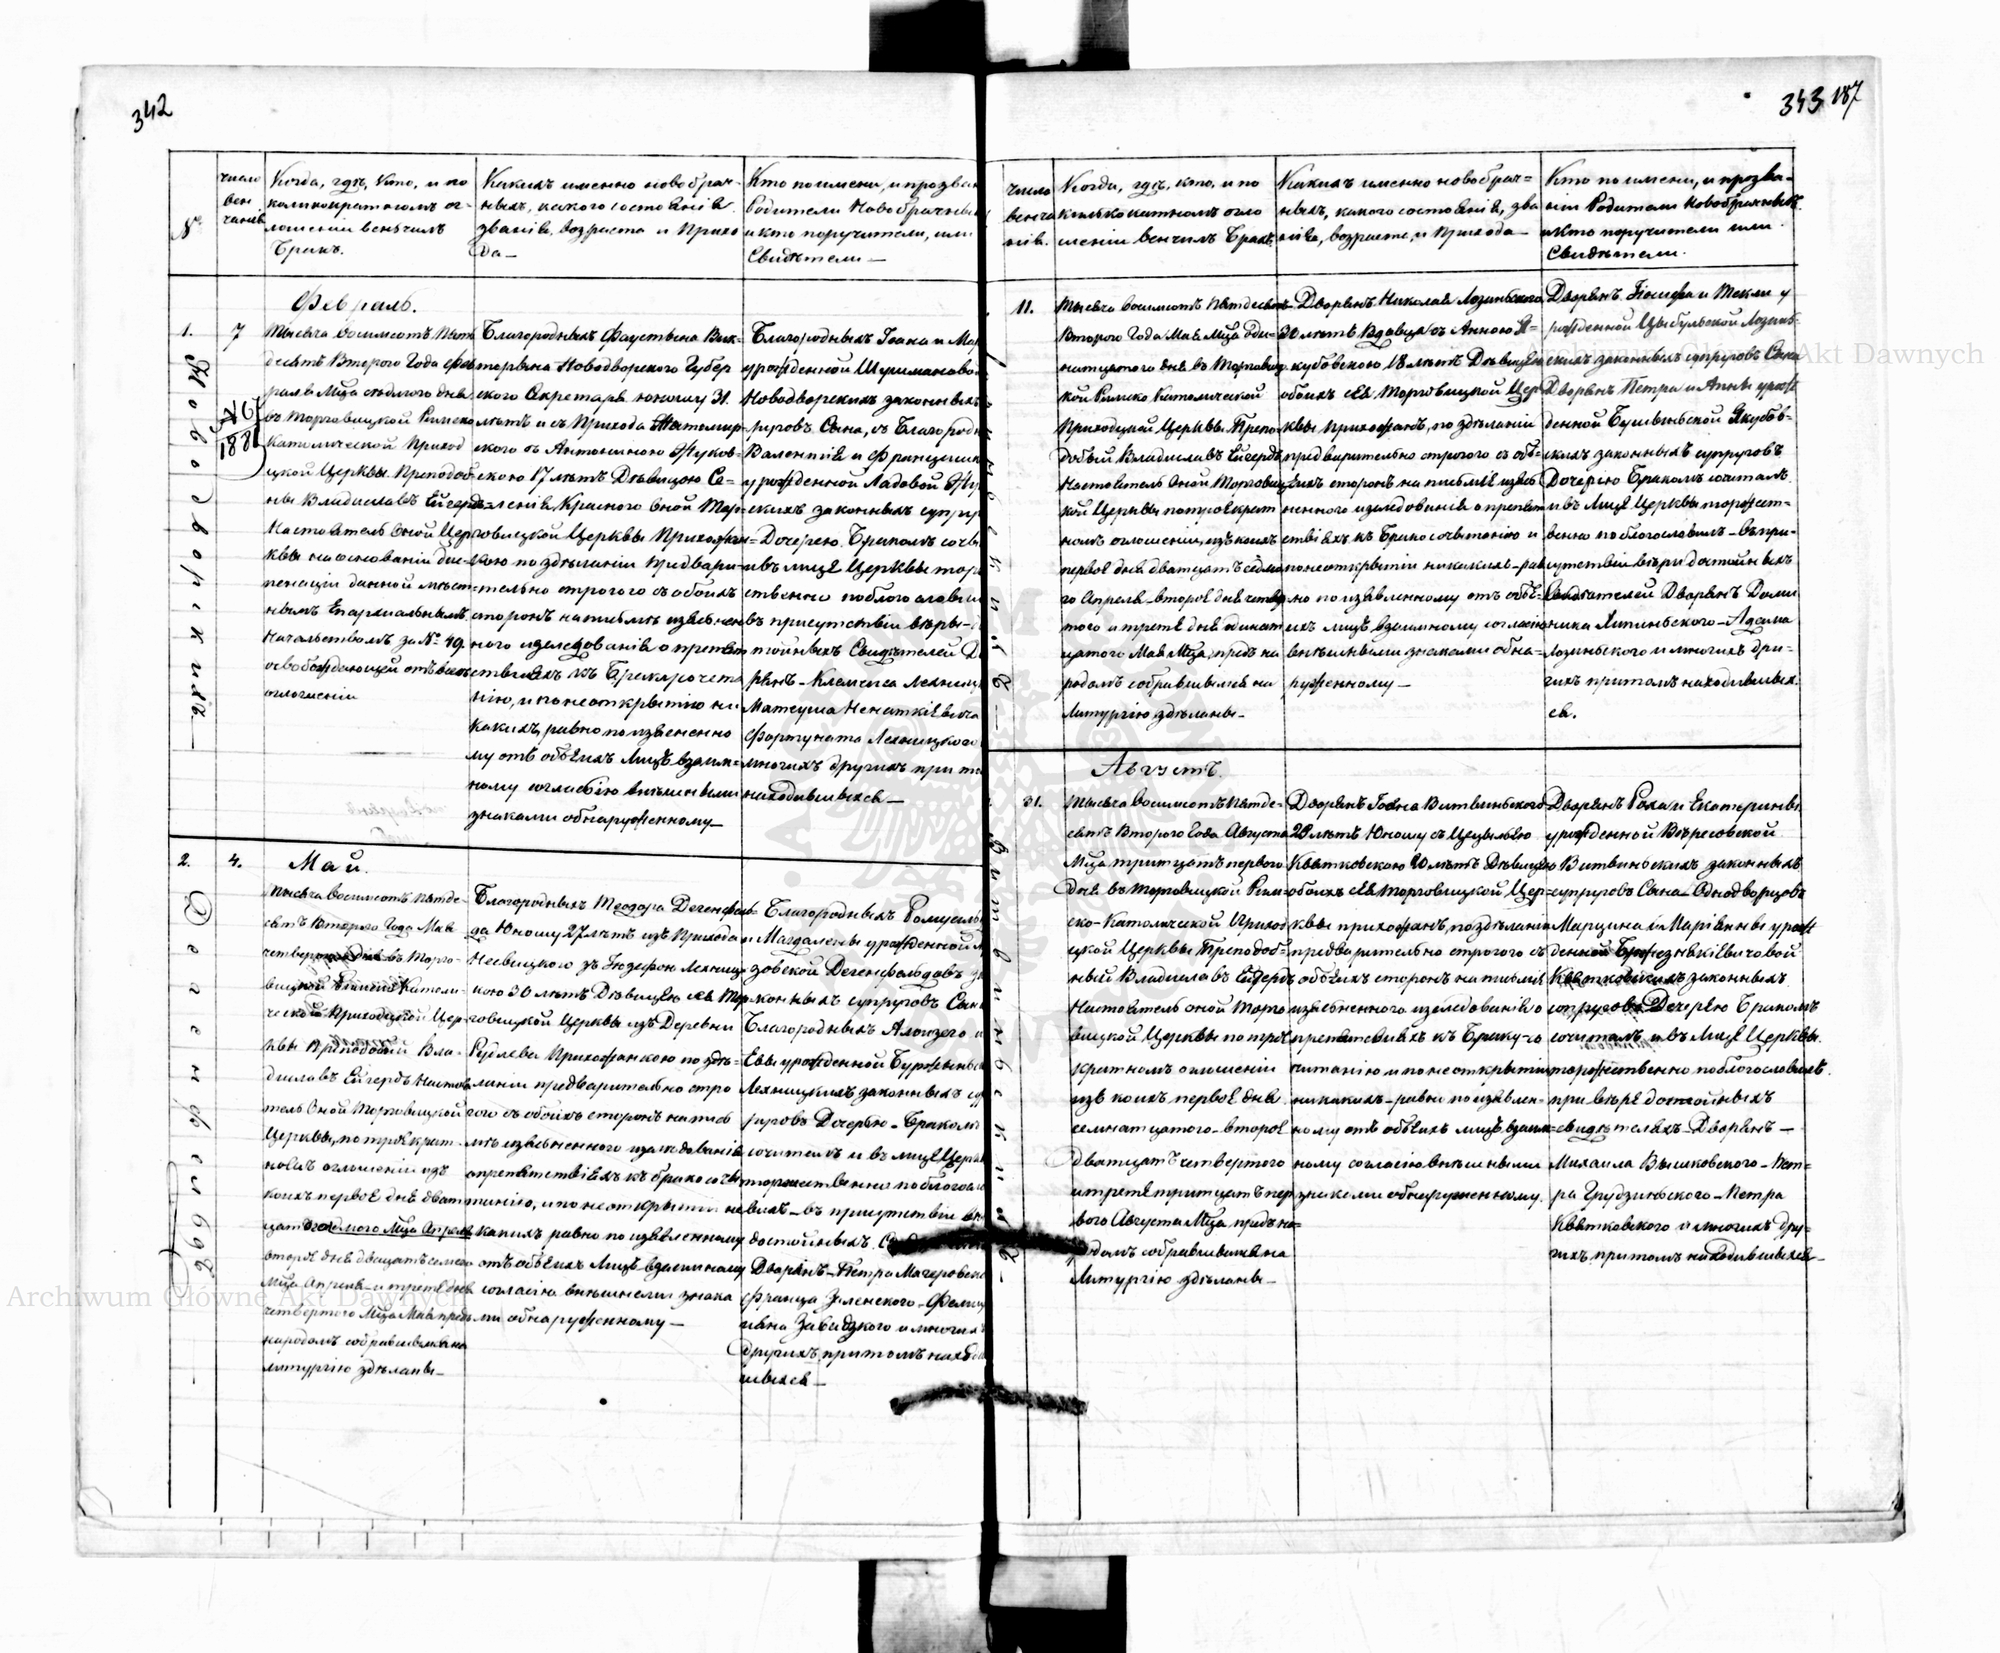 342
№
число
вен
чанія
Когда, гдѣ, кто, и по
коликократномъ ог-
лошеніи венчилъ
Бракъ.
Какихъ именно новобрач-
ныхъ, какого состоянія
званія, возраста и Прихо
да—
Кто по имени, и прозван
Родители Новобрачны
и кто поручители, или
Свидѣтели—
Февраль.
1.
7
Новодворскихъ.—
Тысяча восимсотъ Пят
десятъ Втораго Года Фев
раля Мца седмого дня
въ Торговицкой Римско
Католической Приход
цкой Церквы Преподоб
ны Владиславъ Ейгердъ
Настоятель Оной Цер
квы на основаніи дис-
пенсаціи данной мѣст-
нымъ Епархіальнымъ
Начальствомъ за № 49
освобождающей отъ всѣхъ
оглошеній
Благородныхъ Фаустына Вик-
торына Новодворского Губер
ского Секретаря юношу 31.
лѣтъ и съ Прихода Житомир-
ского съ Антониною Жуков-
скою 17 лѣтъ Дѣвицою Се-
ленія Красного Оной Тор-
говицкой Церквы Прихожан-
кою по здѣланіи Предвари-
тельно строгого съ обоихъ
сторонъ на письмѣ извѣснен
ного изследованія о препят
ствіяхъ къ Бракосочета
нію, и по неоткрытію ни
какихъ, равно по извененно
му отъ обѣихъ лицъ взаим-
ному согласію внѣшными
знаками обнаруженному—
Благородныхъ Іоана и Ма
урожденной Шуримановой
Новодворскихъ законныхъ
руговъ Сына, съ Благородн
Валентія и Францишки
урожденной Ладовой Жу
скихъ законныхъ супру
Дочерею. Бракомъ сочет
и въ лице Церквы тор
ственно поблогославил
въ присутствіи вѣры-
тойныхъ Свидѣтелей Д
рянъ—Клеменса Лехниц
Матеуша Ненаткіевича
Фортуната Лехницкого
многихъ другихъ при то
находившихся—
2.
4.
Дегенфельдъ
Май.
Тысяча восимсотъ Пятде-
сятъ Втораго Года Мая
четвертого дня въ Торго-
вицкой Римско Католи-
ческой Приходцкой Цер-
квы Преподобный Вла-
диславъ Ейгердъ Настоя
тель Оной Торговицкой
Церквы, по троекрат-
номъ оглошеніи изъ
коихъ первое дня дват
цатого седмого Мца Апреля
второе дня двацать семого
Мца Апреля и третѣ дня
четвертого Мца Мая предъ
народомъ собравшымся на
литургію зделаны—
Благородныхъ Теодора Дегенфель-
да Юношу 27 лѣтъ изъ Прихода
Несвицкого зъ Іюзефою Лехниц-
кою 30 лѣтъ Дѣвицею ея Тор
говицкой Церквы изъ Деревни
Рудлева Прихожанкою по здѣ-
ланіи предварительно стро
гого съ обоихъ сторонъ на пись
мѣ извѣсненного изследованія
о препятствіяхъ къ бракосоче
танію, и по неоткрытіи ни
какихъ равно по изявленному
отъ обѣихъ лицъ взаимному
согласію внѣшнеми знака
ми обнаруженному—
Благородныхъ Ромуаль
и Магдалены урожденной
зовской Дегенфельдовъ за
конныхъ супруговъ Сына
Благородныхъ Алоизего и
Евы урожденной Буржынс
Лехницкихъ законныхъ су
руговъ Дочерью—Бракомъ
сочиталъ и въ лице Церк
торжественно поблогосло
вилъ—въ присутствіи вѣ
достойныхъ Свидѣтелей
Дворянъ—Петра Магеровск
Франца Зеленского—Фелиц
іана Завадзкого и многихъ
другихъ, притомъ находи
шыхся—
343 187
число
венча
нія.
Когда, гдѣ, кто, и по
колькократномъ огло
шеніи венчилъ Бракъ.
Какихъ именно новобрач-
ныхъ, какого состоянія, зва
нія, возраста, и прихода—
Кто по имени, и прозва-
нии Родители Новобрачныхъ
и кто поручители или
Свидѣтели.
11.
Тысяча восимсотъ Пятдесятъ
Втораго Года Мая Мца оди-
натцатого дня въ Торговиц
кой Римско Католической
Приходцкой Церквы. Препо-
добый Владиславъ Ейгердъ
Настоятель Оной Торговиц
кой Церквы по троекрат
номъ оглошеніи, изъ коихъ
первое дня дватцать седмо
го Апреля—второе дня четвер
того и третѣ дня одинат
цатого Мая Мца, предъ на
родомъ собравшымся на
Литургію зделаны—
Дворянъ Николая Лозинского
30 лѣтъ Вдовца съ Анною Я-
кубовскою 18 лѣтъ Дѣвицею
обоихъ ея Торговицкой Цер
квы прихожанъ, по здѣланіи
предварительно строгого съ обѣ-
ихъ сторонъ на письмѣ извѣс
ненного изследованія о препят
ствіяхъ къ Бракосочытанію и
по неоткрытіи никакихъ—рав
но по изявленному отъ обѣ-
ихъ лицъ взаимному согласію
внѣшными знаками обна-
руженному—
Дворянъ Іосифа и Текли у
рожденной Цыбульской Лозинь-
скихъ законныхъ супруговъ Сына
Дворянъ Петра и Анны урожд
денной Бушыньской Якубов-
скихъ законныхъ супруговъ
Дочерію Бракомъ сочиталъ
и въ Лице Церквы торжест-
венно поблогославилъ—въ при-
сутствіи вѣри достойныхъ
Свидѣтелей Дворянъ Доми
ника Липиньского—Адама
Лозиньского и многихъ дру-
гихъ притомъ находившых
ся.
31.
Август.
Тысяча восимсотъ Пятде-
сятъ Втораго Года Августа
Мца тритцать первого
дня въ Торговицкой Рим-
ско-Католической Приход
цкой Церквы Преподоб-
ный Владиславъ Ейгердъ
Настоятель оной Торго
вицкой Церквы по трое
кратномъ оглошеніи
изъ коихъ первое дня
семнатцатого—второе
дватцать четвертого
и третѣ тритцать пер
вого Августа Мца предъ на-
родомъ собравшымся на
Литургію зделаны—
Дворянъ Іоана Витвиньского
28 лѣтъ Юношу съ Цецылею
Квятковскою 20 лѣтъ Дѣвицею
обоихъ ея Торговицкой Цер-
квы прихожанъ, по зделаніи
предварительно строгого съ
обѣихъ сторонъ на письмѣ
извѣсненного изследованія о
препятствіяхъ къ Бракусо
читанію и по неоткрытіи
никакихъ—равно по изявлен-
ному отъ обѣихъ лицъ взаим-
ному согласію внѣшными
знаками обнаруженному.
Дворянъ Роха и Екатерины
урожденной Вержесовской
Витвиньскихъ законныхъ
супруговъ Сына—Однодворцовъ
Марцина и Маріянны урожд
денной Бржезнѣкіевичовой
Квятковскихъ законныхъ
супруговъ Дочерью Бракомъ
сочиталъ, и въ Лице Церквы
торжественно поблогославилъ
при вѣре достойныхъ
свидѣтеляхъ—Дворянъ—
Михаила Вышковского—Пет-
ра Грудзиньского—Петра
Квятковского и многихъ дру-
гихъ, притомъ находившыхся—
Archiwum Główne Akt Dawnych
Akt Dawnych